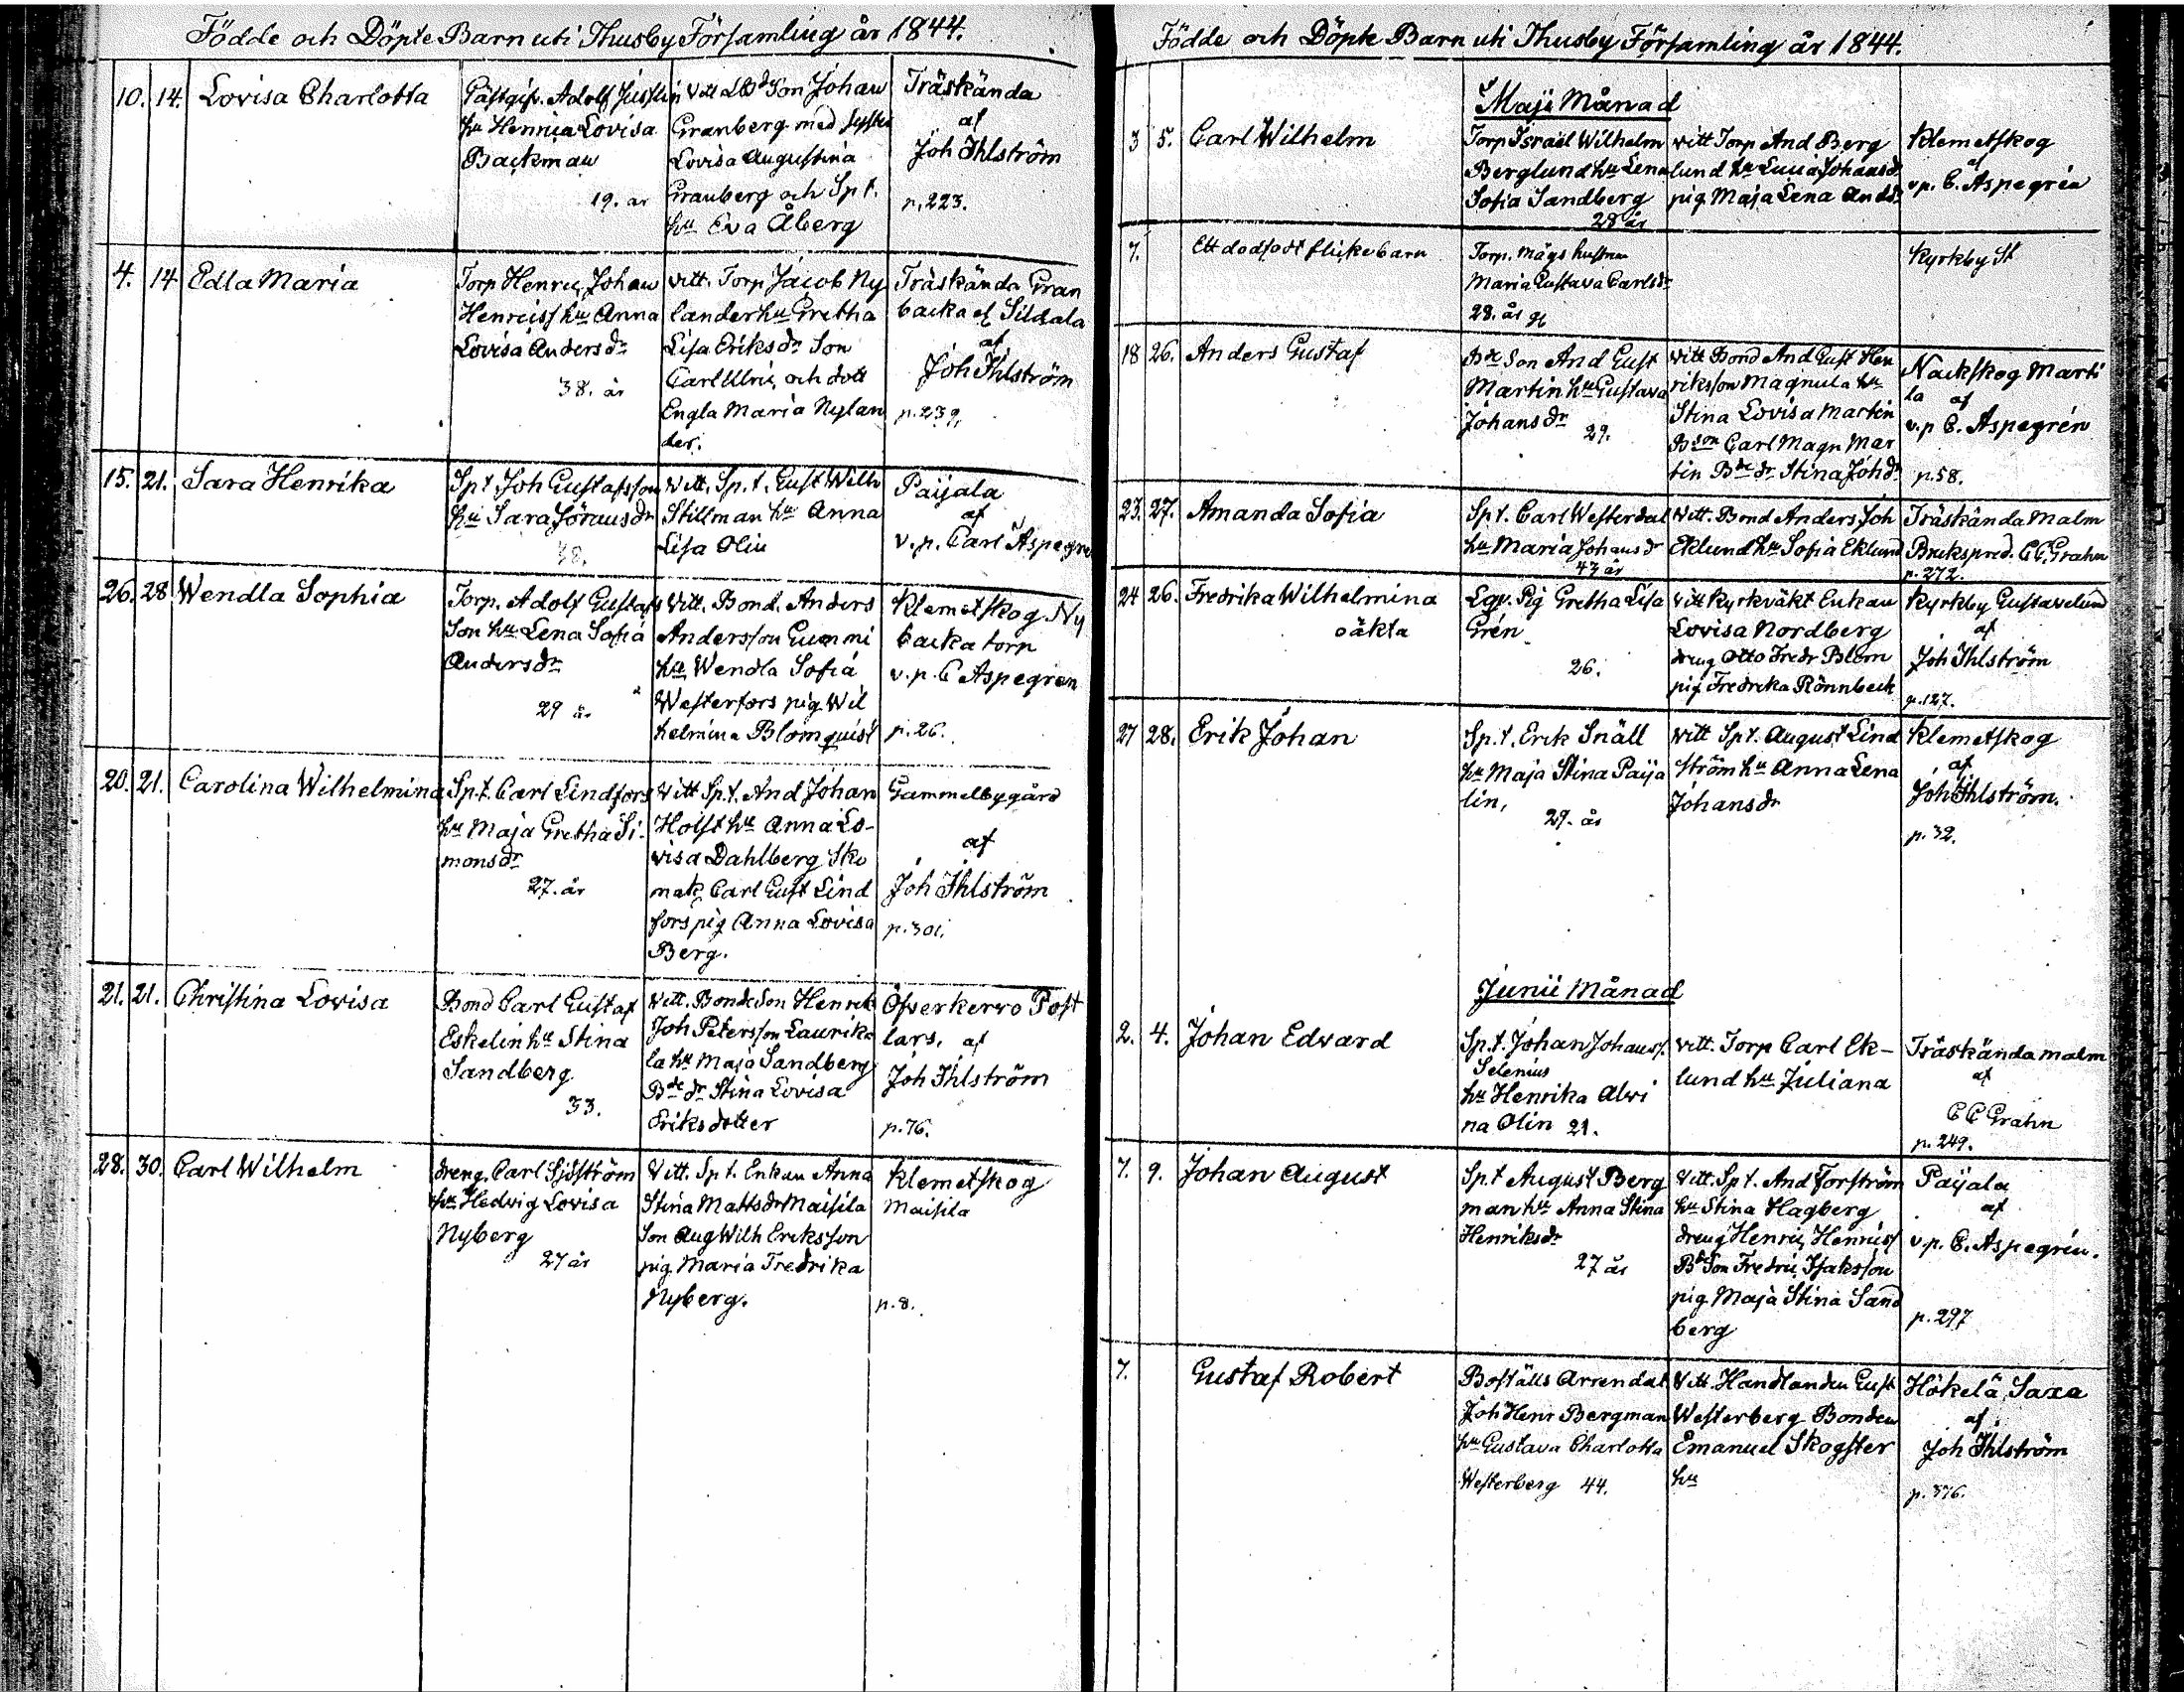 Födde och Döpte Barn uti Thusby Församling år 1844.
10. 14. Lovisa Charlotta
Gästgif. Adolf Justlin
hu Henrica Lovisa
Backman
19. år
Vitt Son Johan
Granberg med syster
Lovisa Augustina
Granberg och Sp.t.
hu Eva Åberg
Träskända
af
Joh Ihlström
p. 223.
4. 14 Edla Maria
Torp Henric Johan
Henricss hu Anna
Lovisa Andersdr
38. år
vitt. Torp Jacob Ny
lander hu Gretha
Lisa Eriksdr Son
Carl Ulric och dott
Engla Maria Nylan
der.
Träskända Gran
backa el Sildala
af
Joh Ihlström
p. 239.
15. 21. Sara Henrika
Sp.t Joh Gustafsson
hu Sara Göransdr
38.
Vitt. Sp.t. Gust Wilh
Stillman hu Anna
Lisa Olin
Paijala
af
v.p. Carl Aspegre
26. 28 Wendla Sophia
Torp. Adolf Gustafs
Son hu Lena Sofia
Andersdr
29 år
Vitt. Bond. Anders
Andersson Gummi
hu Wendla Sofia
Westerfors pig. Wil
helmina Blomquist
Klemetskog Ny
backa torp
v.p. C Aspegren
p. 26.
20. 21. Carolina Wilhelmina
Sp.t. Carl Lindfors
hu Maja Gretha Si-
monsdr
27. år
Vitt Sp.t. And Johan
Holst hu Anna Lo-
visa Dahlberg Sko
mak. Carl Gust Lind
fors pig Anna Lovisa
Berg.
Gammelbygård
af
Joh Ihlström
p. 301.
21. 21. Christina Lovisa
Bond Carl Gustaf
Eskelin hu Stina
Sandberg
33.
Vitt. Bonde Son Henrik
Joh Petersson Laurika
la hu Maja Sandberg
Bde dr Stina Lovisa
Eriksdotter
Öfverkervo Post
lars. af
Joh Ihlström
p. 76.
28. 30. Carl Wilhelm
dreng. Carl Sjöström
hu Hedvig Lovisa
Nyberg
27 år
Vitt. Sp.t. Enkan Anna
Stina Mattsdr Maisila
Son Aug Wilh Eriksson
pig Maria Fredrika
Nyberg.
Klemetskog
Maisila
p. 8.
Födde och Döpte Barn uti Thusby Församling år 1844.
Maji Månad
3 5. Carl Wilhelm
Torp Israel Wilhelm
Berglund hu Lena
Sofia Sandberg
28 år
vitt Torp And Berg
lund hu Lucia Johansdr
pig Maja Lena Andsdr
Klemetskog
af
vp. C. Aspegrén
7. Ett dödfödt flickebarn
Torp. Mågs hustru
Maria Gustava Carlsdr
28. år
Kyrkby St
18 26. Anders Gustaf
Bde Son And Gust
Martin hu Gustava
Johansdr
29.
Vitt Bond And Gust Hen
riksson Magnula hu
Stina Lovisa Martin
Bson Carl Magn Mar
tin Bde dr Stina Johdr
Nackskog Marti
la af
v.p C. Aspegrén
p. 58.
23. 27. Amanda Sofia
Sp.t. Carl Westerdal
hu Maria Johansdr
43 år
Vitt. Bond Anders Joh
Eklund hu Sofia Eklund
Träskända Malm
Brukspred. C C Grahn
p. 272.
24 26. Fredrika Wilhelmina
oäkta
Lgv. Pig Gretha Lisa
Grén
26.
Vitt Kyrkväkt Enkan
Lovisa Nordberg
dreng Otto Fredr Blom
pig Fredrika Rönnbeck
Kyrkby Gustavelund
af
Joh Ihlström
p. 127.
27 28. Erik Johan
Sp.t. Erik Snäll
hu Maja Stina Paija
lin,
29. år
Vitt Sp.t. August Lind
ström hu Anna Lena
Johansdr
Klemetskog
af
Joh Ihlström.
p. 32.
Junii Månad
2. 4. Johan Edvard
Sp.t. Johan Johanss.
Selenius
hu Henrika Alvi
na Olin 21.
vitt. Torp Carl Ek-
lund hu Juliana
Träskända malm
af
C C Grahn
p. 249.
7. 9. Johan August
Sp.t August Berg
man hu Anna Stina
Henriksdr
27 år
Vitt. Sp.t. And Forström
hu Stina Hagberg
dreng Henric Henricss
Bde Son Fredric Isaksson
pig Maja Stina Sand
berg
Paijala
af
v.p. C. Aspegrén.
p. 297
7. Gustaf Robert
Boställs Arrendat
Joh Henr Bergman
hu Gustava Charlotta
Westerberg 44.
Vitt. Handlanden Gust
Westerberg Bonden
Emanuel Skogster
hu
Hökelä, Saxa
af
Joh Ihlström
p. 376.